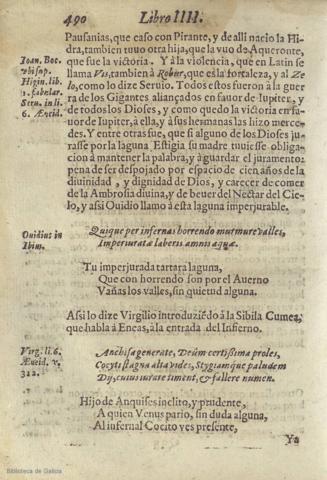 490 Libro IIII.
Pausanias, que caso con Pirante, y de alli nacio la Hi-
dra, tambien tuuo otra hija, que la vuo de Aqueronte,
que fue la victoria. Y à la violencia, que en Latin se
llama Vis, tambien à Robur, que es la fortaleza, y al Ze
lo, como lo dize Seruio. Todos estos fueron à la guer
ra de los Gigantes aliançados en fauor de Iupiter, y
de todos los Dioses, y como quedo la victoria en fa-
uor de Iupiter, à ella, y à sus hermanas las hizo merce-
des. Y entre otras fue, que si alguno de los Dioses ju-
rasse por la laguna Estigia su madre tuuiesse obliga-
cion à mantener la palabra, y à guardar el juramento,
pena de ser despojado por espacio de cien años de la
diuinidad, y dignidad de Dios, y carecer de comer
de la Ambrosia diuina, y de beuer del Nectar del Cie-
lo, y assi Ouidio llamo à esta laguna imperjurable.
Ioan. Boc.
vbi sup.
Higin. lib.
1. fabular.
Seru. in li.
6. Æneid.
Ouidius in
Ibim.
Quique per infernas horrendo murmure valles,
Imperiuratæ laberis amnis aquæ.
Tu imperjurada tartara laguna,
Que con horrendo son por el Auerno
Vañas los valles, sin quietud alguna.
Assi lo dize Virgilio introduziẽdo à la Sibila Cumea,
que habla à Eneas, à la entrada del Infierno.
Virg. li. 6.
Æneid. v.
322.
Anchisa generate, Deûm certissima proles,
Cocyti stagna alta vides, Stygiamque paludem
Dij, cuius iurare timent, & fallere numen.
Hijo de Anquises inclito, y prudente,
A quien Venus pario, sin duda alguna,
Al infernal Cocito ves presente,
Ya
Biblioteca de Galicia